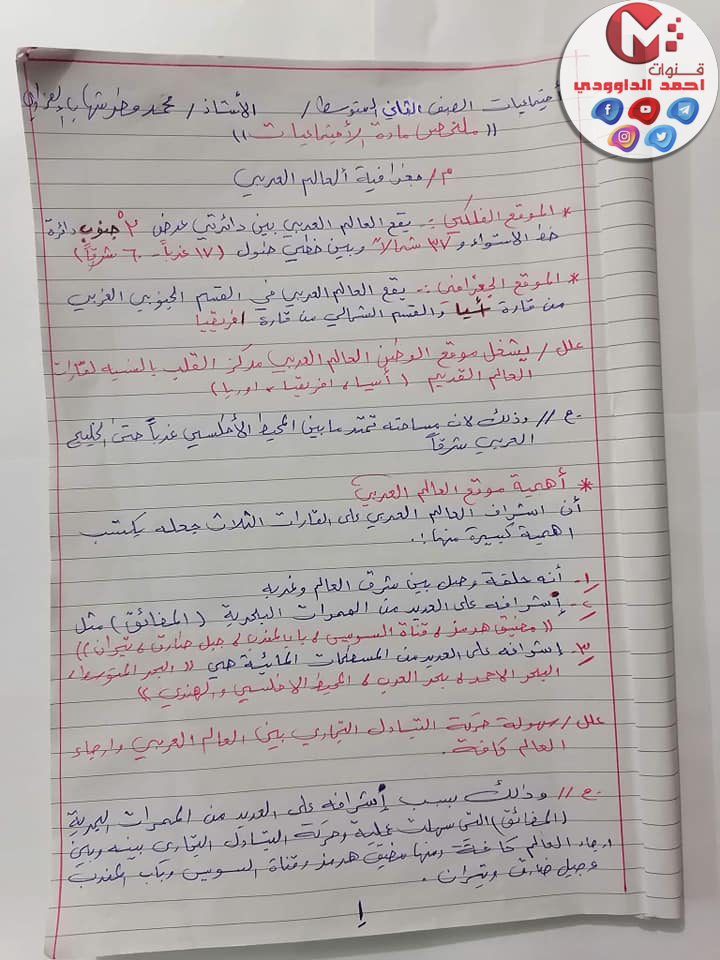 قنوات
احمد الداوودي
أجتماعيات الصف الثاني المتوسط / الأستاذ / محمد
(( ملخص مادة الأجتماعيات ))
م / جغرافية العالم العربي
* الموقع الفلكي :- يقع العالم العربي بين دائرتي عرض ٢° جنوب دائرة
خط الاستواء و ٣٧ شمالاً وبين خطي طول ( ١٧ غرباً - ٦٠ شرقاً )
* الموقع الجغرافي :- يقع العالم العربي في القسم الجنوبي الغربي
من قارة أسيا والقسم الشمالي من قارة افريقيا
علل / يشغل موقع الوطن العالم العربي مركز القلب بالنسبه لقارات
العالم القديم ( أسيا ، افريقيا ، اوربا )
ج // وذلك لان مساحته تمتد ما بين المحيط الأطلسي غرباً حتى الخليج
العربي شرقاً
* أهمية موقع العالم العربي
أن اشراف العالم العربي على القارات الثلاث جعله يكتسب
اهمية كبيرة منها :.
١- أنه حلقة وصل بين شرق العالم وغربه
٢- إشرافه على العديد من الممرات البحرية ( المضائق ) مثل
(( مضيق هرمز ، قناة السويس ، باب المندب ، جبل طارق ، تيران ))
٣- إشرافه على العديد من المسطحات المائية هي (( البحر المتوسط ،
البحر الاحمر ، بحر العرب ، المحيط الاطلسي والهندي ))
علل / سهولة حركة التبادل التجاري بين العالم العربي وارجاء
العالم كافة .
ج // وذلك بسبب إشرافه على العديد من الممرات البحرية
( المضائق ) التي سهلت عملية وحركة التبادل التجاري بينه وبين
ارجاء العالم كافة ومنها مضيق هرمز وقناة السويس وباب المندب
وجبل طارق وتيران .
١